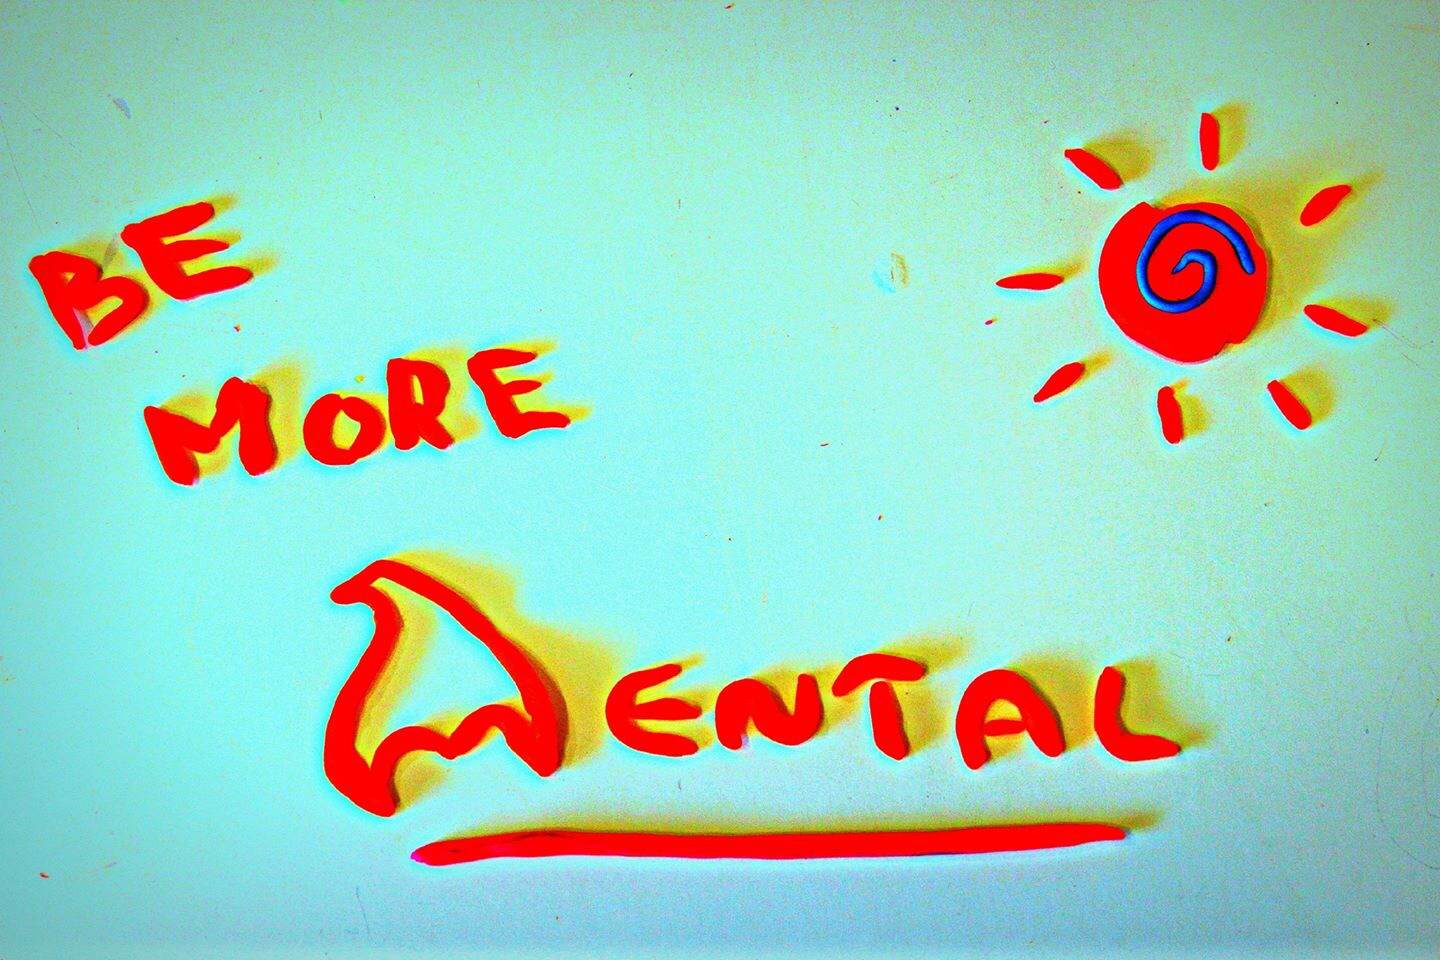 BE
MORE
DENTAL